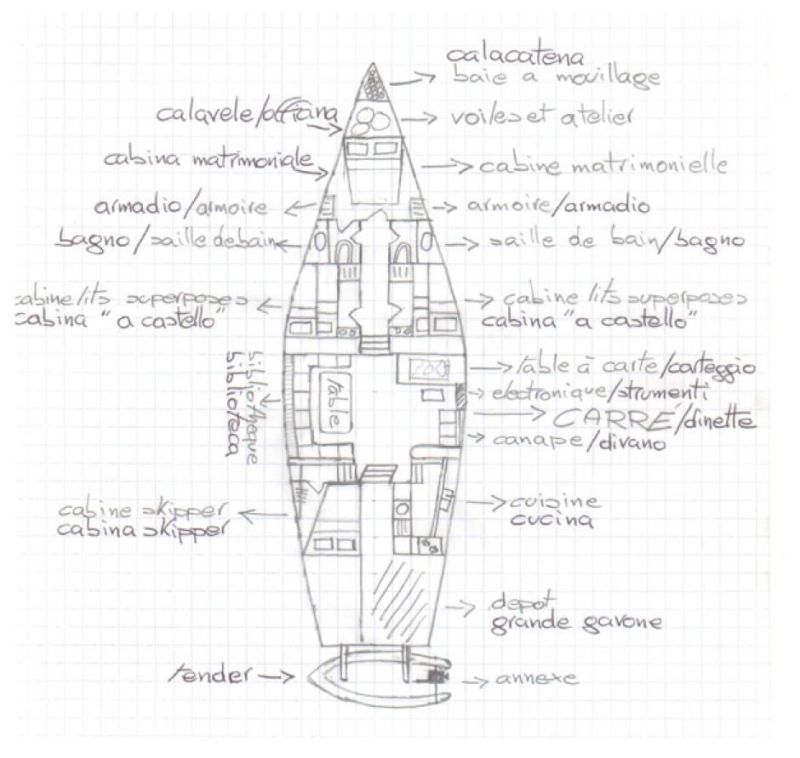 calacatena
baie a mouillage
calavele/officina
voiles et atelier
cabina matrimoniale
cabine matrimonielle
armadio/armoire
armoire/armadio
bagno/saille debain
saille de bain/bagno
cabine lits superposes
cabina "a castello"
cabine lits superposes
cabina "a castello"
bibliotheque
biblioteca
table
table à carte/carteggio
electronique/strumenti
CARRÉ/dinette
canape/divano
cabine skipper
cabina skipper
cuisine
cucina
depot
grande gavone
tender
annexe